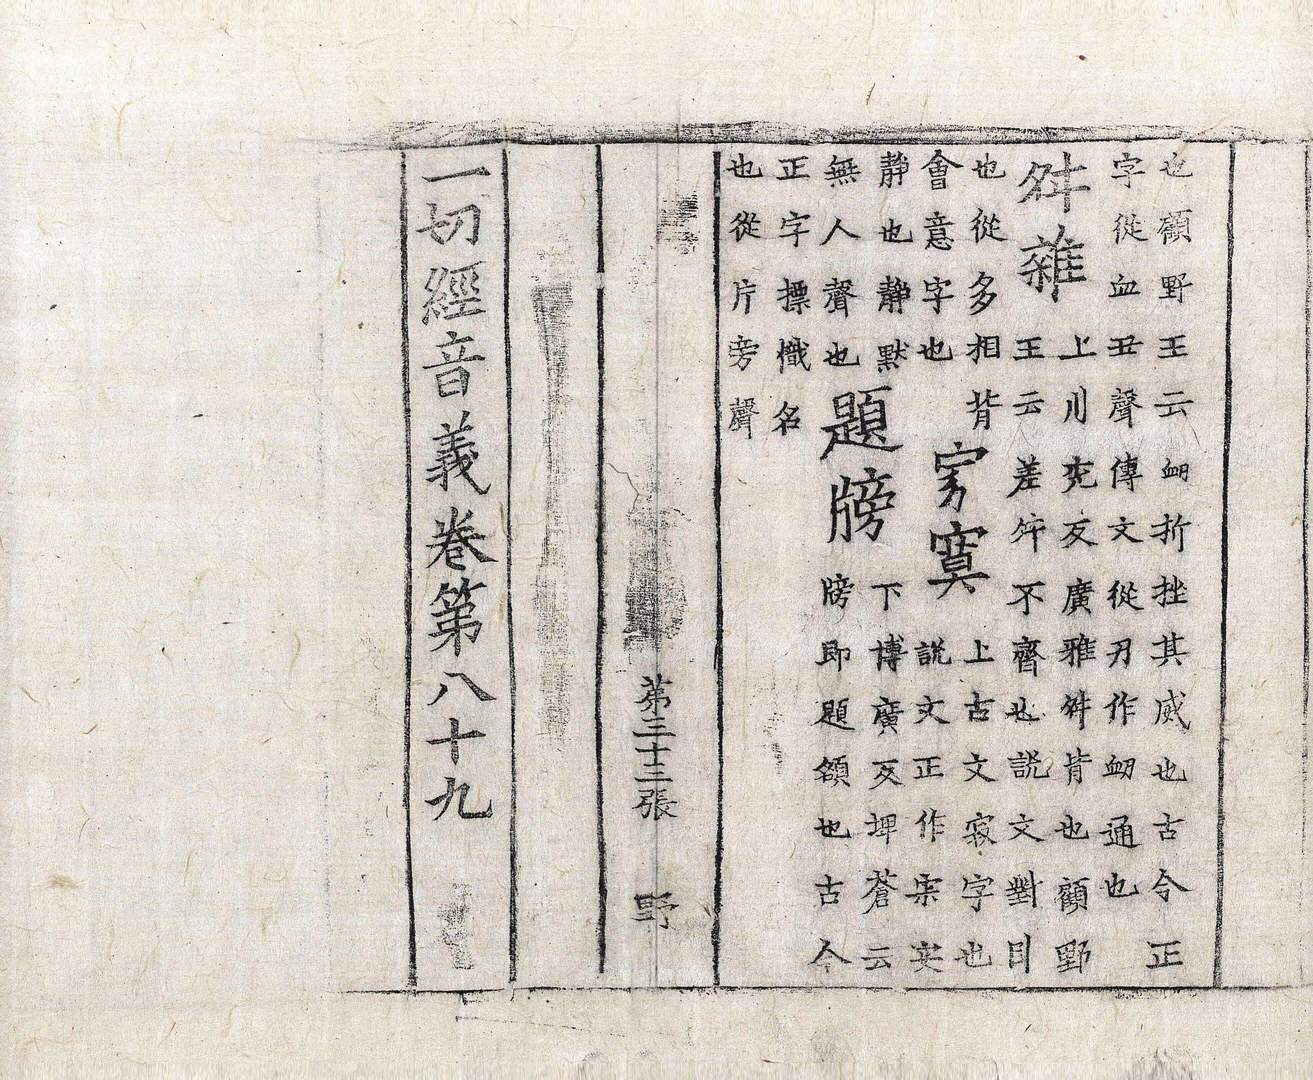 也顧野王云衂折挫其威也古今正
字從血丑聲傳文從刃作衂通也
舛雜
上川兖反廣雅舛背也顧野
王云差舛不齊也說文對目
也從多相背
會意字也
㝌寞
上古文寂字也
說文正作宲宲
静也静默
無人聲也
題牓
下博廣反埤蒼云
牓即題額也古今
正字摽幟名
也從片旁聲
第三十二張 野
一切經音義卷第八十九